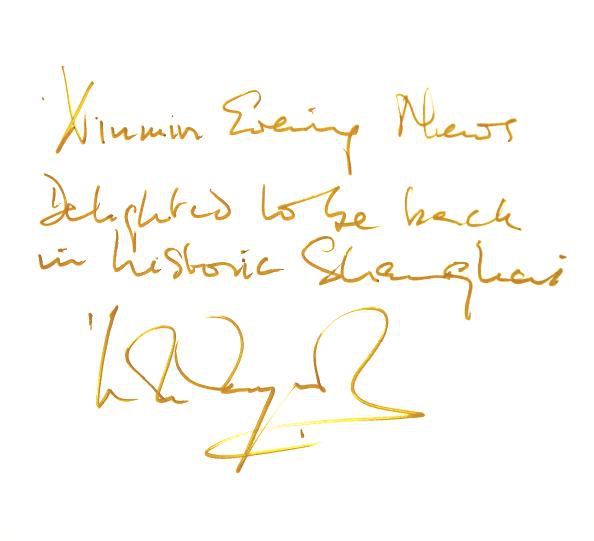 Xinmin Evening News
Delighted to be back
in historic Shanghai